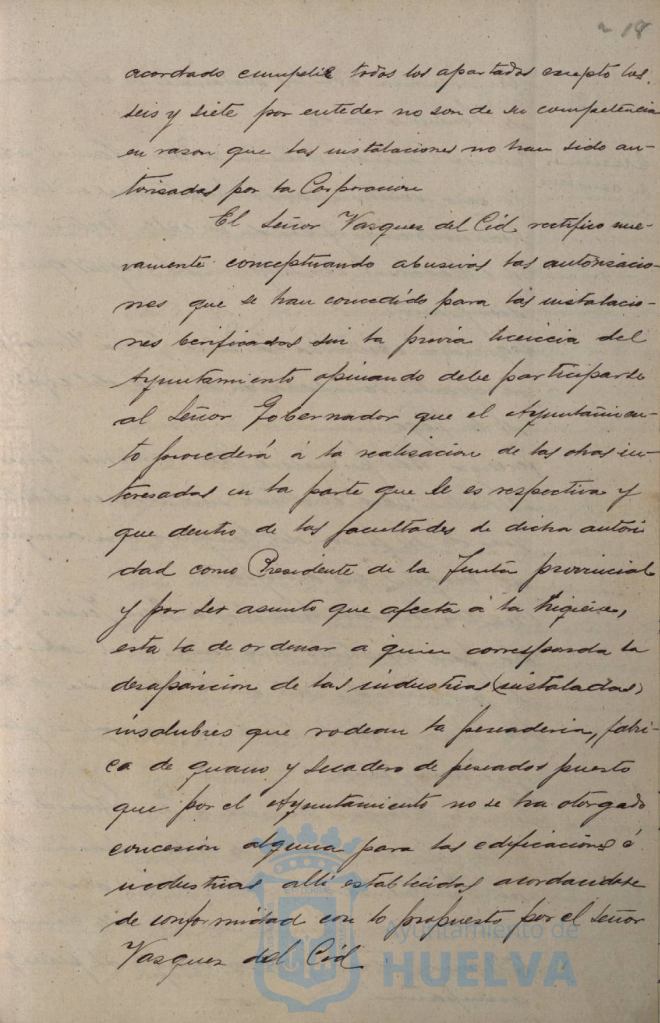 18
acordado cumplir todos los apartados excepto los
seis y siete por enteder no son de su competencia
en razon que las instalaciones no han sido au-
torisadas por la Corporacion
El Señor Vasquez del Cid rectifico nue-
vamente conceptuando abusivas las autorisacio-
nes que se han concedido para las instalacio-
nes berificadas sin la previa licencia del
Ayuntamiento opinando debe participarse
al Señor Gobernador que el Ayuntamien-
to procederá á la realisacion de las obras in-
teresadas en la parte que le es respectiva y
que dentro de las facultades de dicha autori
dad como Presidente de la Junta provincial
y por ser asunto que afecta á la higiene,
esta la de ordenar a quien corresponda la
desaparicion de las industrias (instaladas)
insalubres que rodean la pescaderia, fabri-
ca de guano y secadero de pescados puesto
que por el Ayuntamiento no se ha otorgado
concesión alguna para las edificaciones é
industrias alli establecidas acordandose
de conformidad con lo propuesto por el Señor
Vasquez del Cid
Ayuntamiento de
HUELVA